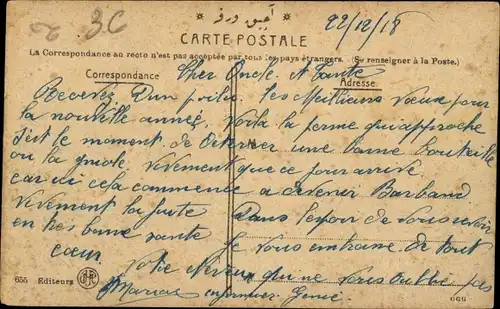 3C
22/12/18
CARTE POSTALE
La Correspondance au recto n'est pas acceptée par tous les pays étrangers. (Se renseigner à la Poste.)
Correspondance
Adresse
Cher Oncle et Tante
Recevez d'un poilu les Meilleurs vœux pour
la nouvelle année. Voilà la qui approche
c'est le moment de une bonne bouteille
ou la gnole vivement que ce jour arrive
car ici cela commence a devenir Barbant
Vivement la fuite Dans l'espoir de vous revoir
en très bonne santé je vous embrasse de tout
cœur
Votre Neveu qui ne vous oublie pas
Marius infirmier Genie
655 Editeurs